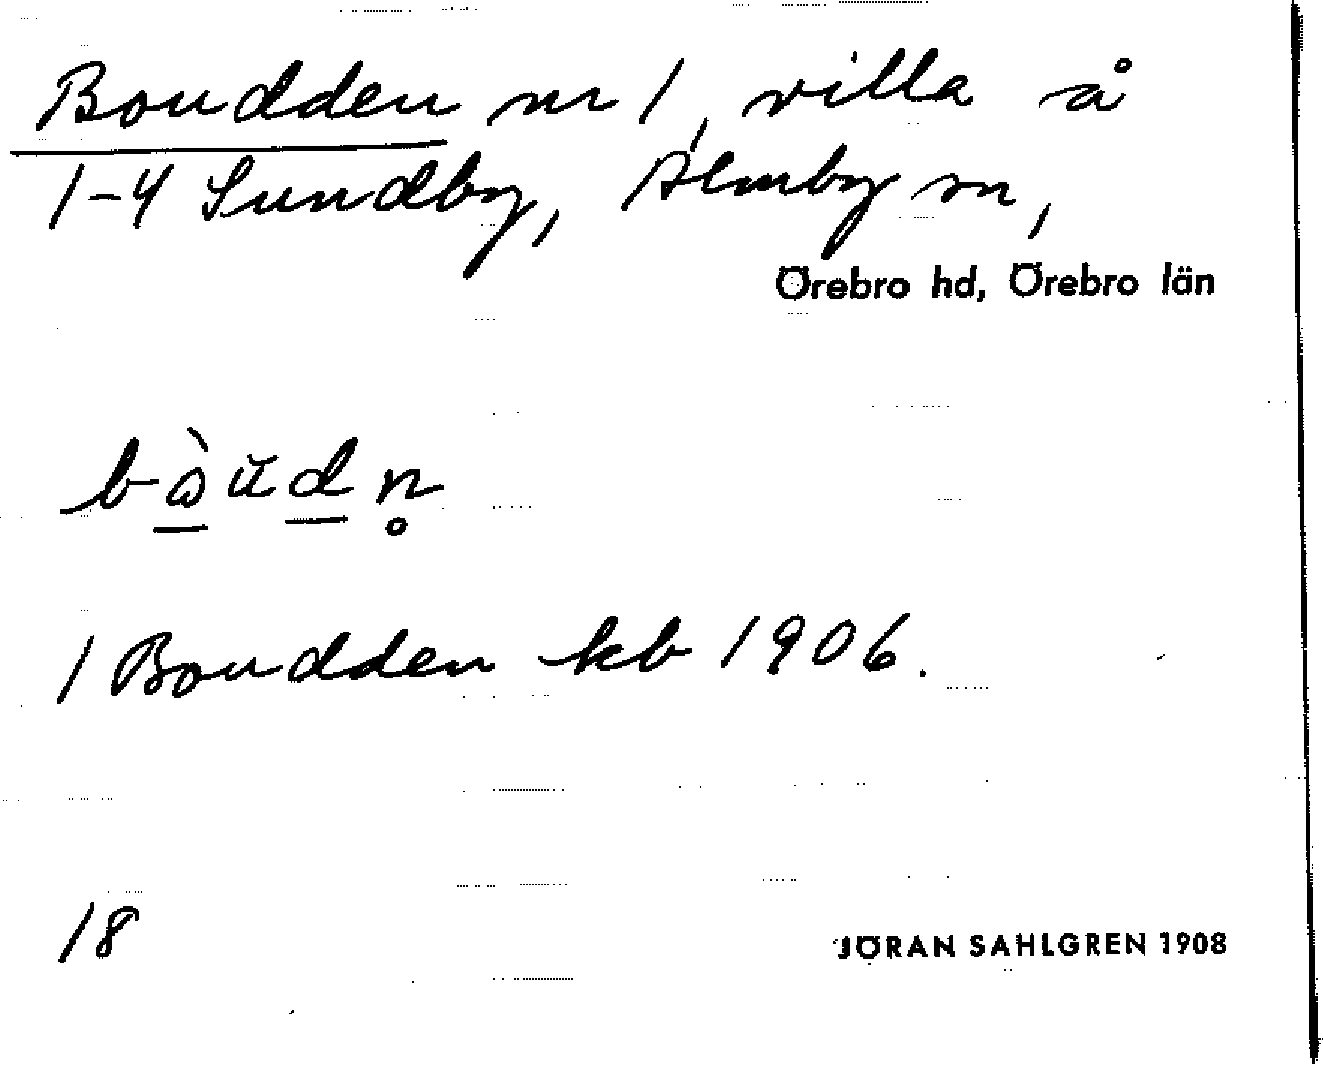 Boudden nr 1, villa å
1-4 Sundby, Almby sn,
Örebro hd, Örebro län
bὼŭdn̥
1 Boudden kb 1906.
18
JÖRAN SAHLGREN 1908